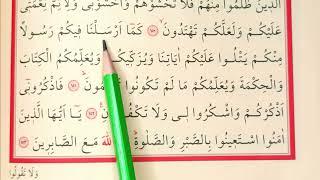 الَّذِينَ ظَلَمُوا مِنْهُمْ فَلَا تَخْشَوْهُمْ وَاخْشَوْنِي وَلِأُتِمَّ نِعْمَتِي
عَلَيْكُمْ وَلَعَلَّكُمْ تَهْتَدُونَ ﴿١٥٠﴾ كَمَا أَرْسَلْنَا فِيكُمْ رَسُولًا
مِنْكُمْ يَتْلُوا عَلَيْكُمْ آيَاتِنَا وَيُزَكِّيكُمْ وَيُعَلِّمُكُمُ الْكِتَابَ
وَالْحِكْمَةَ وَيُعَلِّمُكُمْ مَا لَمْ تَكُونُوا تَعْلَمُونَ ﴿١٥١﴾ فَاذْكُرُونِي
أَذْكُرْكُمْ وَاشْكُرُوا لِي وَلَا تَكْفُرُونِ ﴿١٥٢﴾ يَا أَيُّهَا الَّذِينَ
آمَنُوا اسْتَعِينُوا بِالصَّبْرِ وَالصَّلٰوةِ اللّٰهَ مَعَ الصَّابِرِينَ ﴿١٥٣﴾
وَلَا تَقُولُوا